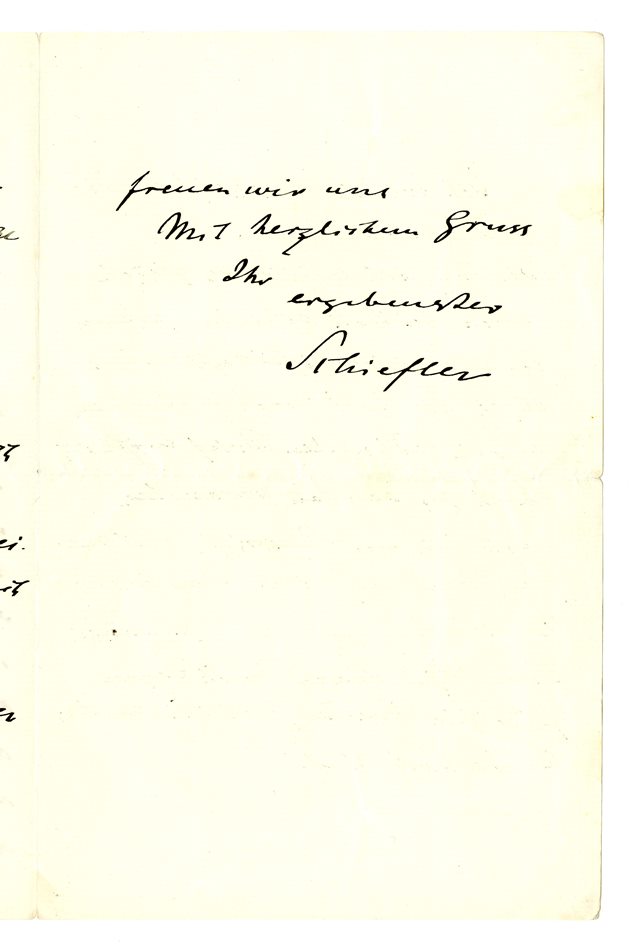 freuen wir uns
Mit herzlichem Gruss
Ihr
ergebenster
Schiefler